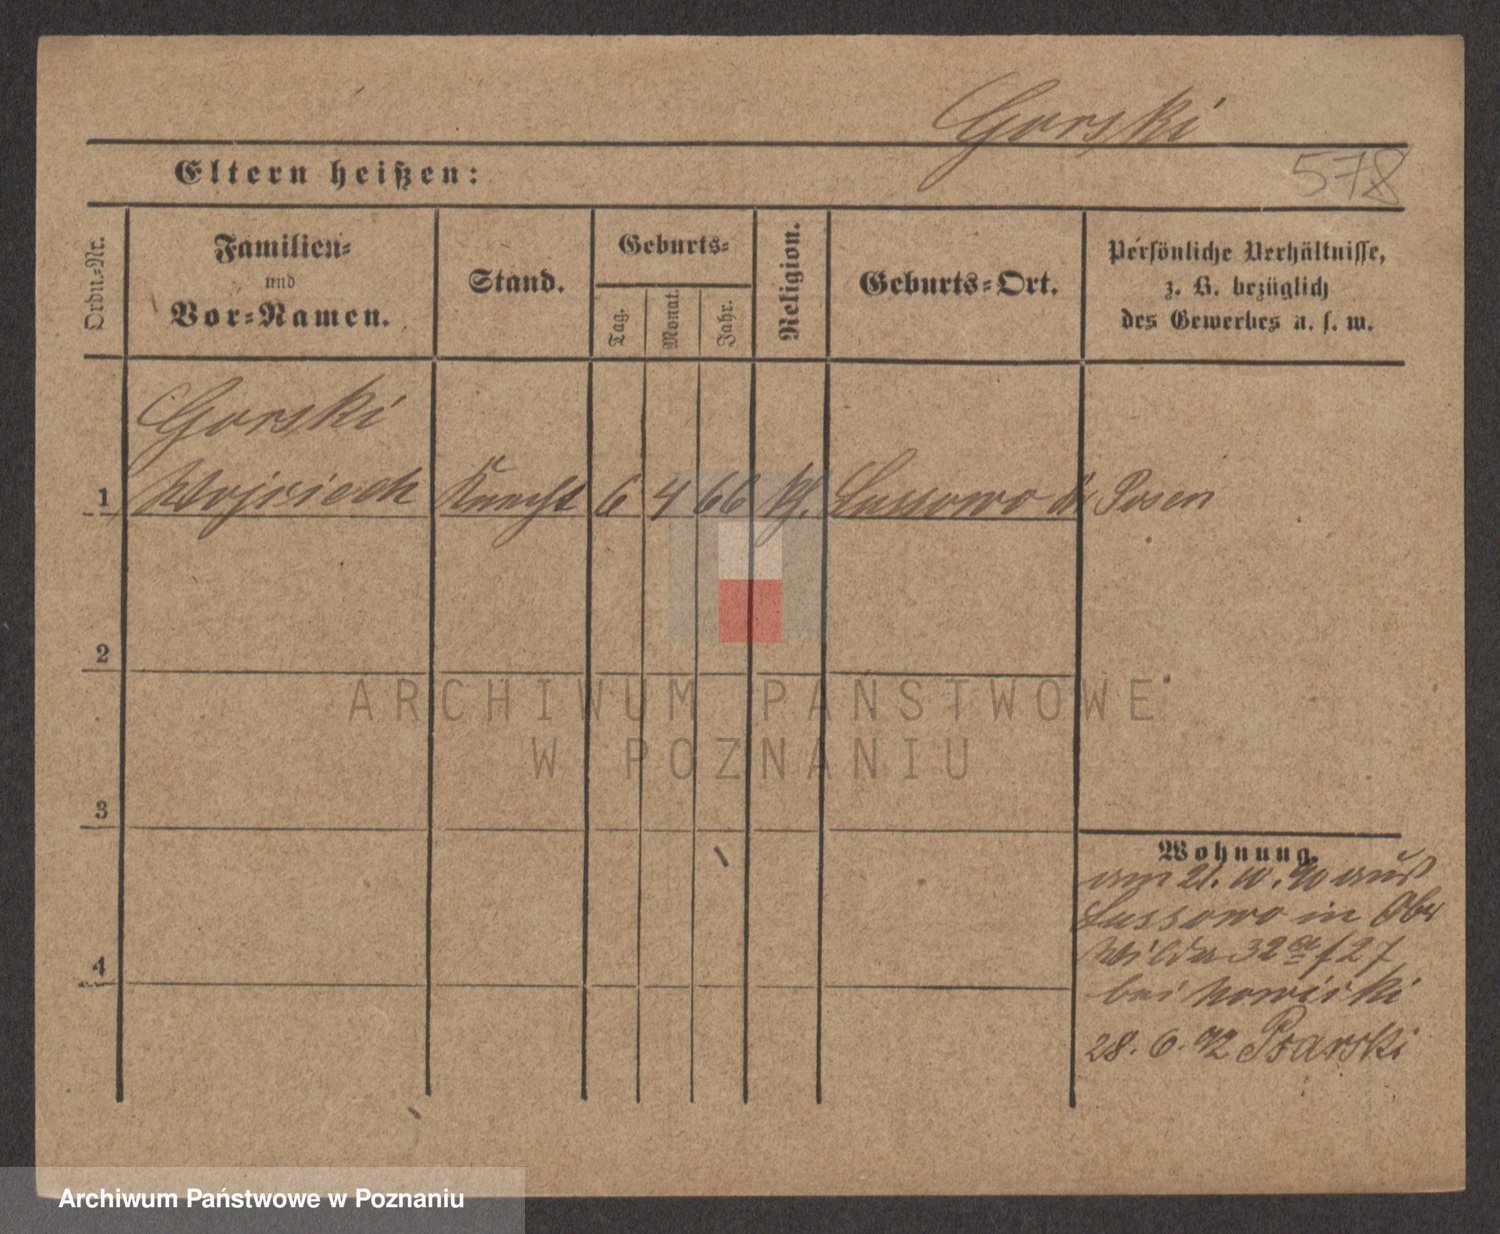 Gorski
578
Eltern heißen:
Ordn.-Nr.
Familien-
und
Vor-Namen.
Stand.
Geburts-
Tag.
Monat.
Jahr.
Religion.
Geburts-Ort.
Persönliche Verhältnisse,
z. B. bezüglich
des Gewerbes u. s. w.
Gorski
1 Wojciech Knecht 6 4 66 kf. Lussowo Posen
2
3
4
Wohnung.
am 21. 10. 90 aus
Lussowo in Ober
Wilda 32 27
bei Nowicki
28. 6. 92 Psarski
ARCHIWUM PAŃSTWOWE
W POZNANIU
Archiwum Państwowe w Poznaniu